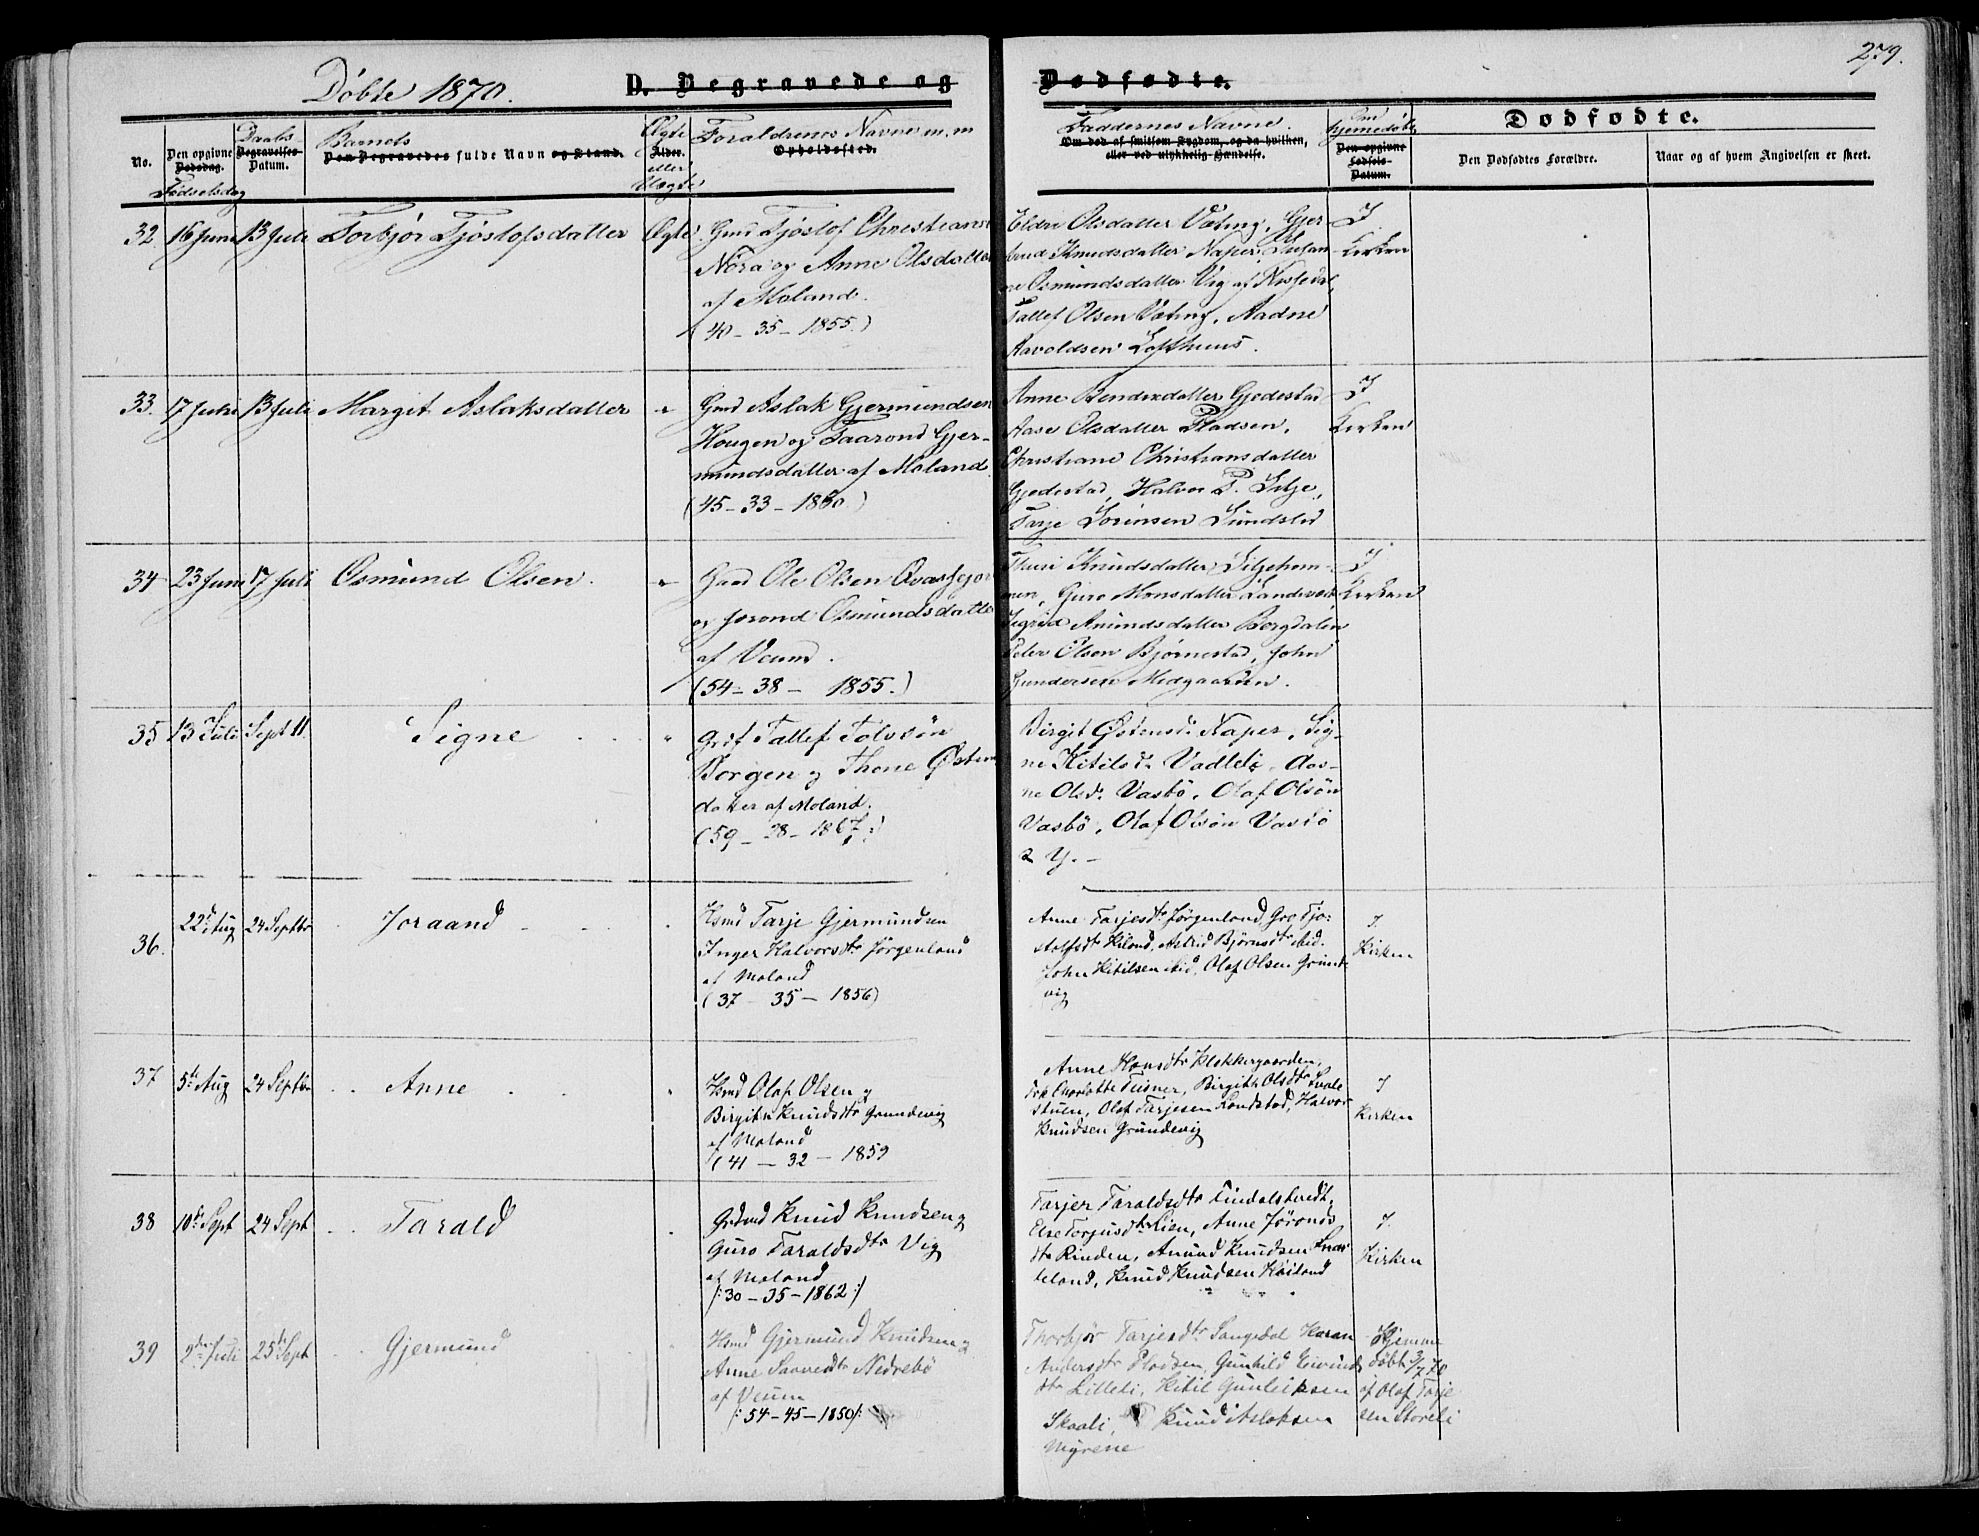 279.
Døbte 1870.
D. Begravede og Dødfødte.
No.
Den opgivne Dødsdag.
Fødselsdag
Daabs
Begravelses-Datum.
Barnets
Den Begravedes fulde Navn og Stand.
Ægte
Alder.
eller
Uægte
Foraldrenes Navne m. m
Opholdssted.
Faddernes Navne.
Om død af smitsom Sygdom, og da hvilken,
eller ved ulykkelig Hændelse.
Om
hjemmedøbt
Den opgivne
Fødsels-
Datum.
Dødfødte.
Den Dødfødtes Forældre.
Naar og af hvem Angivelsen er skeet.
32 16 Juni 13 Juli Torbjør Tjøstofsdatter Ægte Gmd Tjøstof Christians
Nora og Anne Olsdatter
af Moland.
(40 - 35 - 1855.)
Eldri Olsdatter Væting, Gjer
trud Knudsdatter Naper, Susan
ne Osmundsdatter Vig af
Tallef Olsen Væting, Aadne
Aavoldsen Lofthuus.
I
Kirken
33. 17 Juni 13 Juli Margit Aslaksdatter " Gmd Aslak Gjermundsen
Haugen og Taarond Gjer-
mundsdatter af Moland
(45 - 33 - 1860.)
Anne Bendixdatter Gjedestad
Aase Olsdatter Pladsen,
Christiane Christiansdatter
Gjedestad, Halvor P. Lilje,
Tarje Sørensen Sundsted
I
Kirken
34 23 Juni 17 Juli Osmund Olsen. " Gaad Ole Olsen Qvasfjor
og Jorond Osmundsdatter
af Veum.
(54 - 38 - 1855.)
Thuri Knudsdatter Liljehom-
men, Guro Monsdatter Landsverk
Sigrid Anundsdatter Borgdalen
Peder Olsen Bjørnestad, John
Gundersen Midgaarden.
I
Kirken
35 13 Juli Sept 11. Signe . . . " Grif Tallef Tolvsön
Borgen og Thone Østens
datter af Moland.
(59 - 28 - 1867:)
Birgit Østensd. Naper, Sig-
ne Kitilsd. Vadleli, Aas-
ne Olsd. Vasbö, Olaf Olsön
Vasbö, Olaf Olsön Vasbö
2 y. -
36. 22d Aug 24 Septbr Joraand . . Hsmd Tarje Gjermundsen
Inger Halvorsdtr Jørgenland
af Moland
(37 - 35 - 1856)
Anne Tarjesdtr Jørgenland, Gro Tjo:
stolfsdtr Kiland, Astrid Bjørnsdtr ibid.
John Kitilsen ibid, Olaf Olsen Grunde
vig
I.
Kirken
37 5te Aug 24 Septbr . . Anne . . " Hsmd Olaf Olsen og
Birgith Knudsdtr Grundevig
af Moland
(41 - 32 - 1859
Anne Hansdtr Klokkergaarden,
Frk Charlotte Teisner, Birgith Olsdtr Svale
stuen, Olaf Tarjesen Londstad, Halvor
Knudsen Grundevig
I
Kirken
38 10de Sept 24 Sept . . Tarald Grdmd Knud Knudsen og
Guro Taraldsdtr Vig
af Moland
/: 30 - 35 - 1862 :/
Tarjer Taraldsdtr
Else Torjusdtr Lien, Anne Jøronds
dtr Rinden, Anund Knudsen
leland, Knud Knudsen Kåiland
I.
Kirken
39 2den Juli 25de Sept . . Gjermund Hsmd Gjermund Knudsen og
Anne Saavesdtr Nedrebö
af Veum
/: 54 - 45 - 1850 /:
Thorbjør Tarjesdtr Sangedal Karan
Andersdtr Pladsen, Gunhild Eivinds
dtr Lilleli, Kitil Gunleiksen
Skaali, Knud Aslaksen
Myrene
Hjemme
døbt 3/7 70
af Olaf Tarje
sen Storeli